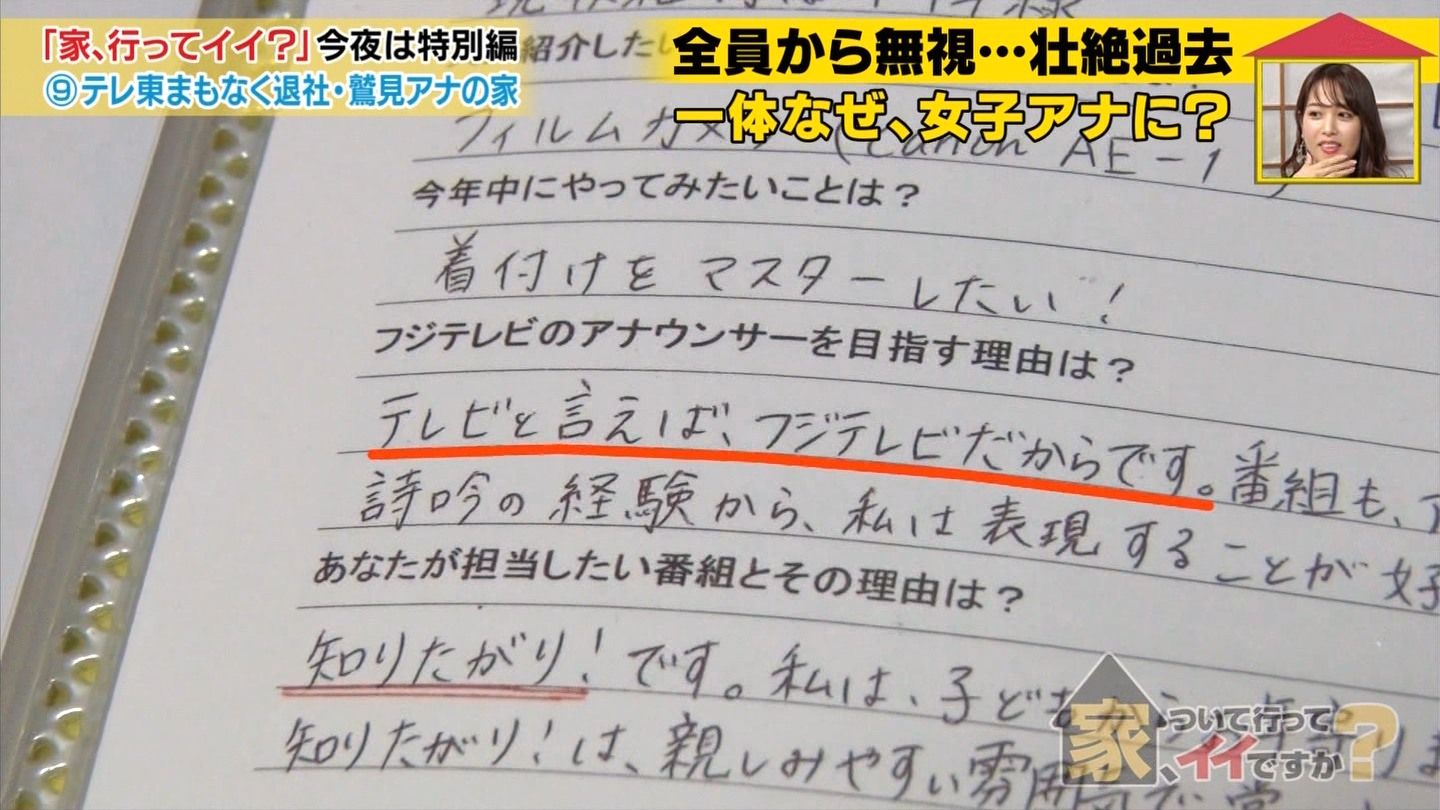 「家、行ってイイ?」今夜は特別編
⑨テレ東まもなく退社・鷲見アナの家
全員から無視…壮絶過去
一体なぜ、女子アナに?
紹介したい
フィルムカメラ (Canon AE-1
今年中にやってみたいことは?
着付けをマスターしたい!
フジテレビのアナウンサーを目指す理由は?
テレビと言えば、フジテレビだからです。番組も、
詩吟の経験から、私は表現することが好
あなたが担当したい番組とその理由は?
知りたがり!です。私は、子ども
知りたがり!は、親しみやすい雰囲気
家、ついて行ってイイですか?